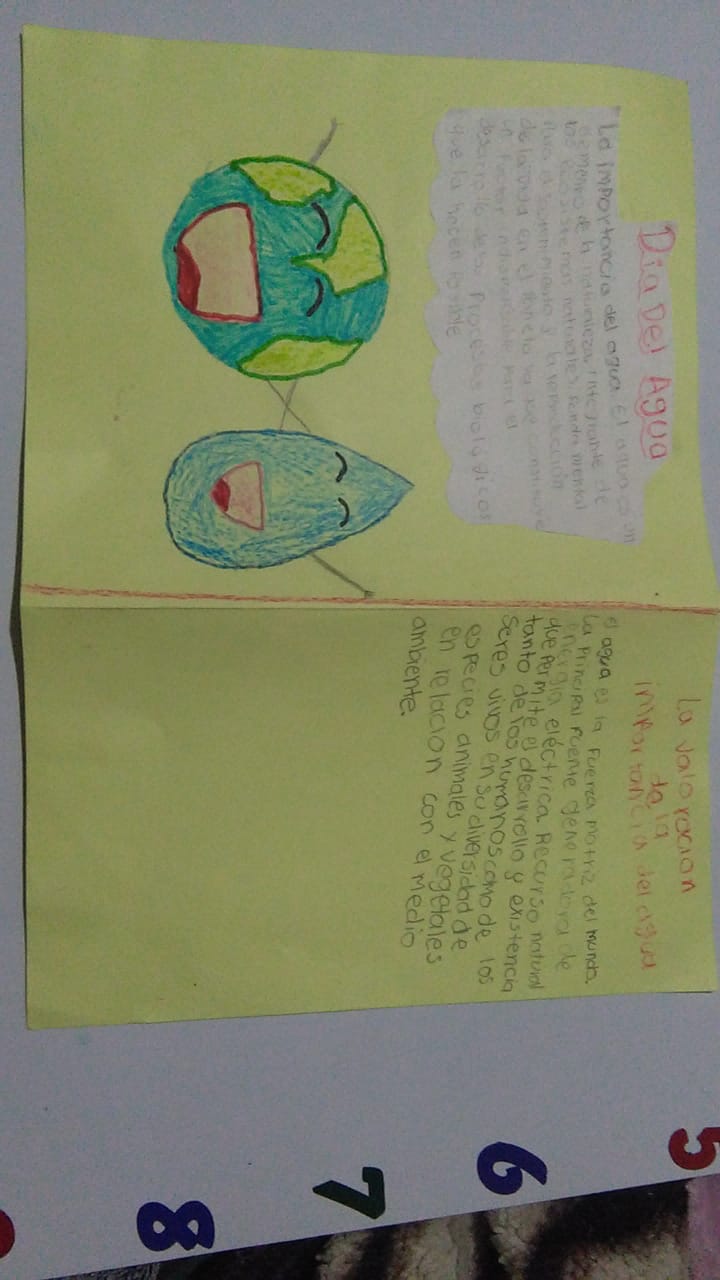 Día Del Agua
La importancia del agua El agua es un
elemento de la naturaleza, integrante de
los ecosistemas naturales, fundamental
para el sostenimiento y la reproducción
de la vida en el planeta ya que constituye
un factor indispensable para el
desarrollo de los Procesos biológicos
que la hacen posible
La valoracion
da la
importancia del agua
el agua es la fuerza motriz del mundo,
la Principal fuente generadora de
energia eléctrica. Recurso natural
que permite el desarrollo y existencia
tanto de los humanos como de los
seres vivos en su diversidad de
especies animales y vegetales
en relacion con el medio
ambiente.
5
6
7
8